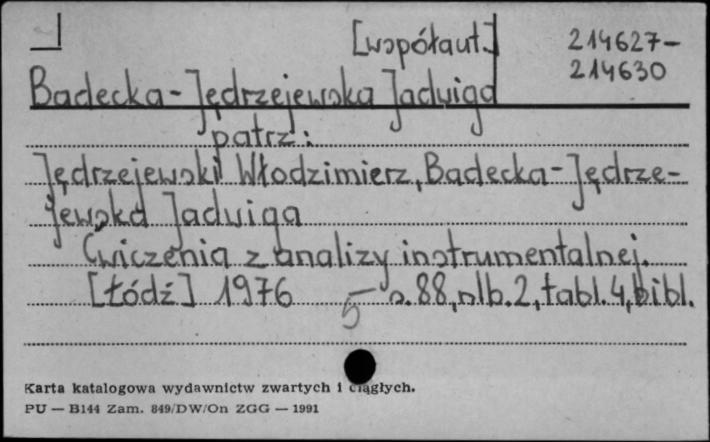 [współaut.] 214627-
214630
Badecka-Jędrzejewska Jadwiga
patrz:
Jędrzejewski Włodzimierz, Badecka-Jędrze-
jewska Jadwiga
Ćwiczenia z analizy instrumentalnej.
[Łódź] 1976 5 s.88, nlb.2, tabl.4, bibl.
Karta katalogowa wydawnictw zwartych i ciągłych.
PU — B144 Zam. 849/DW/On ZGG — 1991